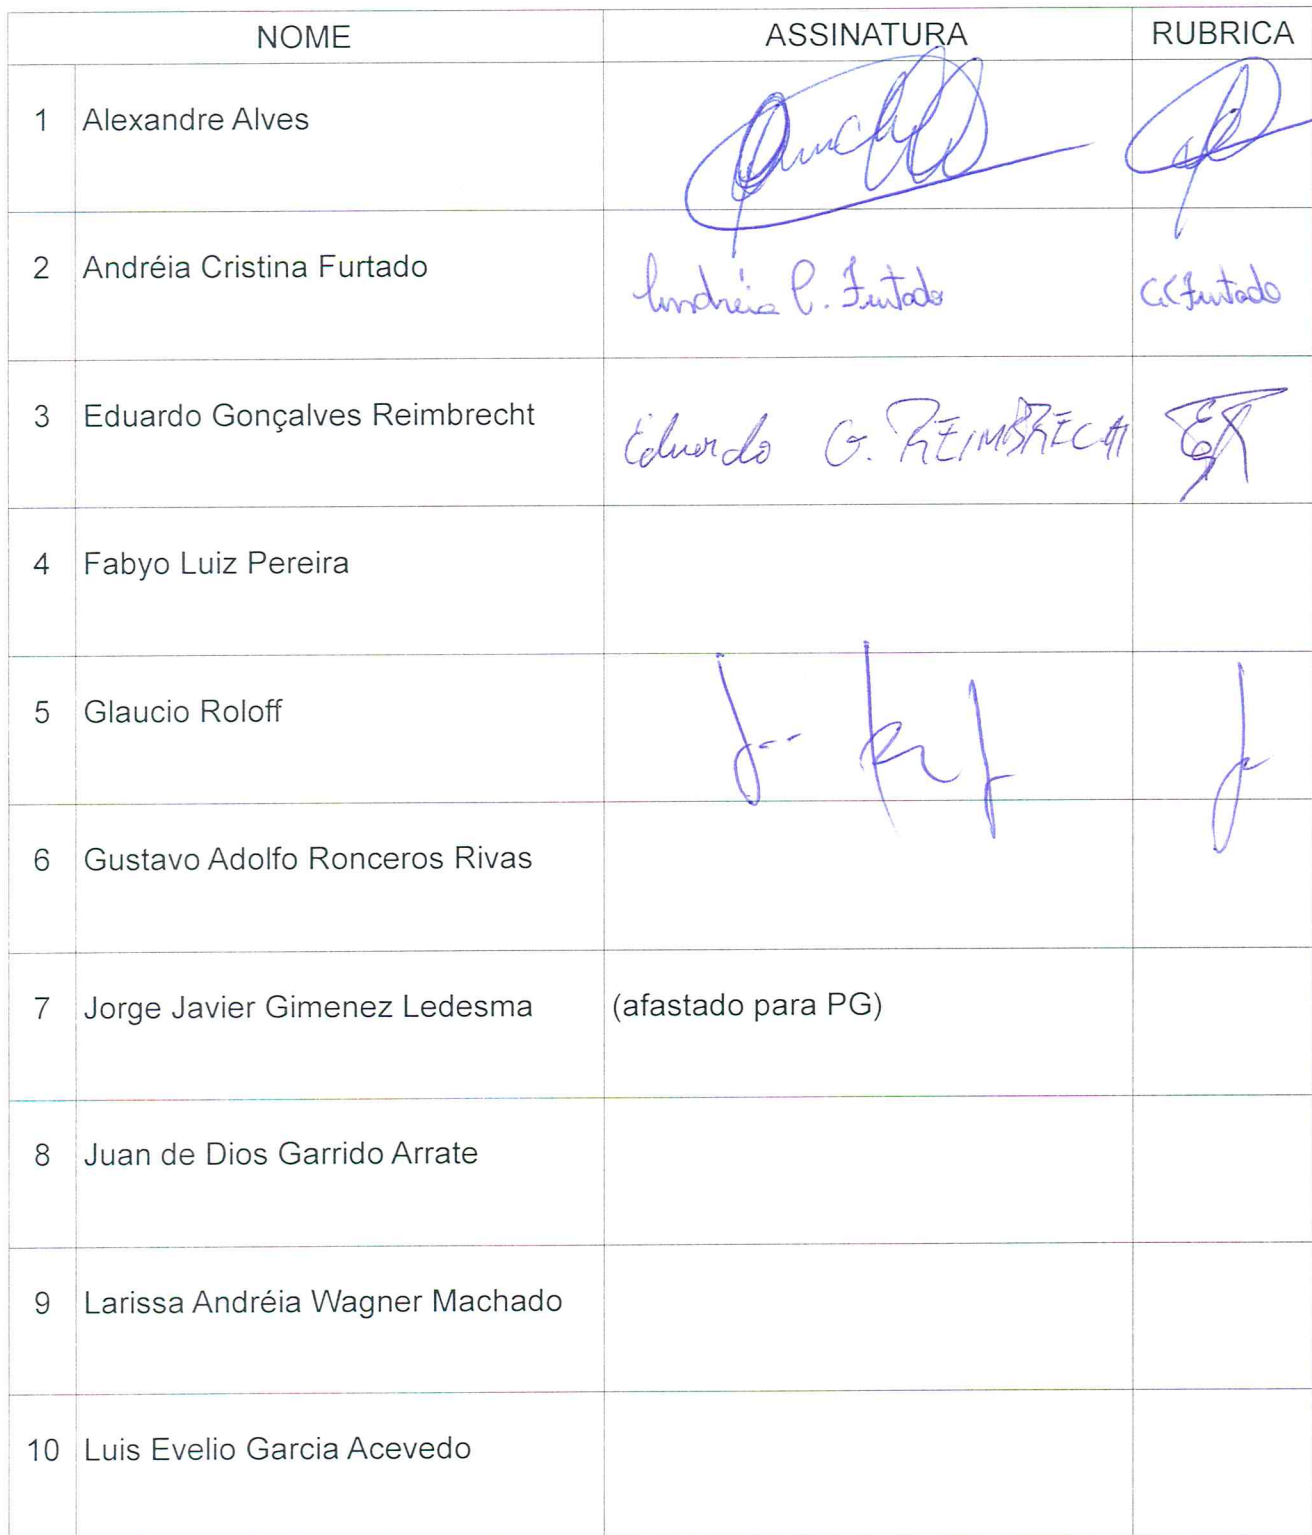 NOME ASSINATURA RUBRICA
1 Alexandre Alves
2 Andréia Cristina Furtado Andréia C. Furtado ACFurtado
3 Eduardo Gonçalves Reimbrecht Eduardo G. REIMBRECHT
4 Fabyo Luiz Pereira
5 Glaucio Roloff
6 Gustavo Adolfo Ronceros Rivas
7 Jorge Javier Gimenez Ledesma (afastado para PG)
8 Juan de Dios Garrido Arrate
9 Larissa Andréia Wagner Machado
10 Luis Evelio Garcia Acevedo